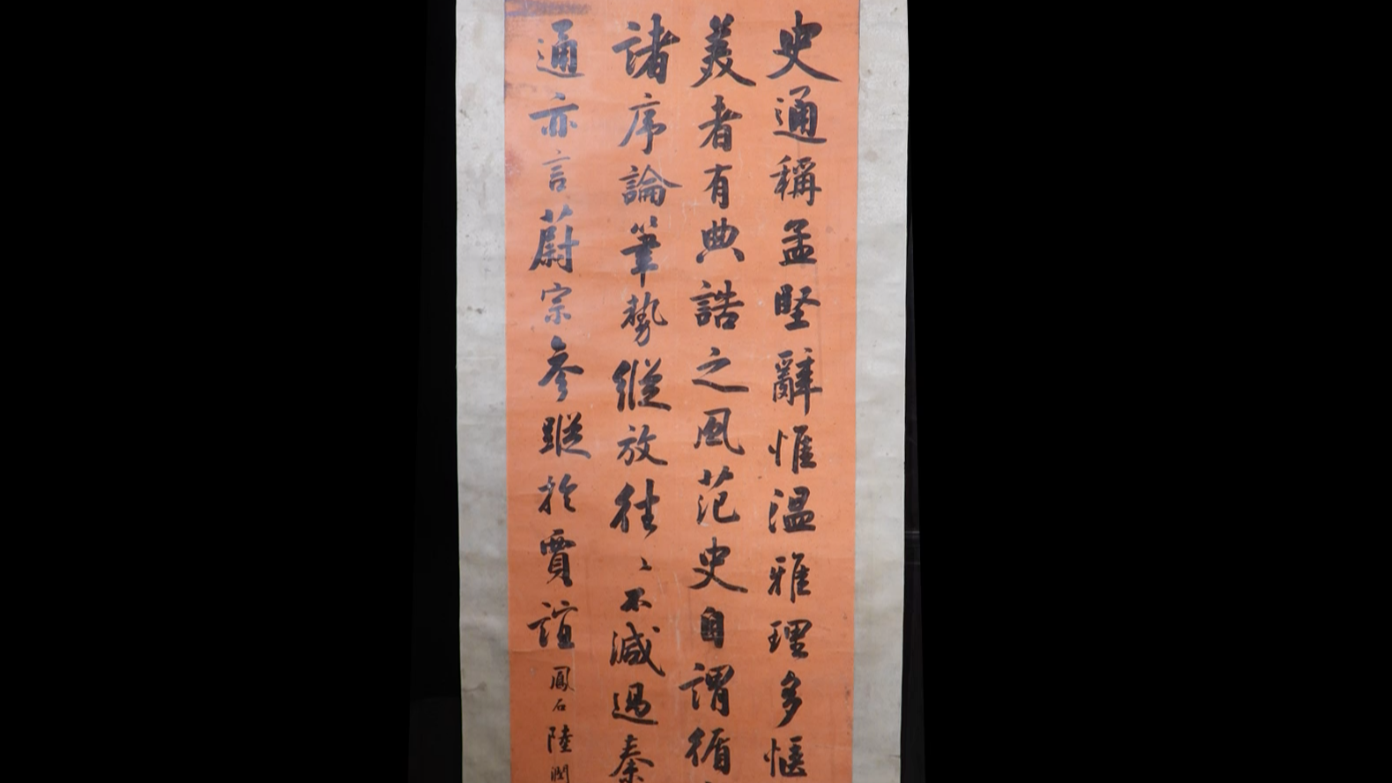 史通稱孟堅辭惟温雅理多愜
羙者有典誥之風范史自謂循
諸序論筆勢縱放往〻不減過秦
通亦言蔚宗參蹤於賈誼鳳石陸潤